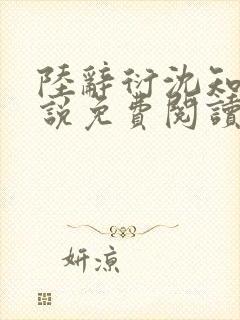 陸辭衍沈知
說免費閱讀
妍凉